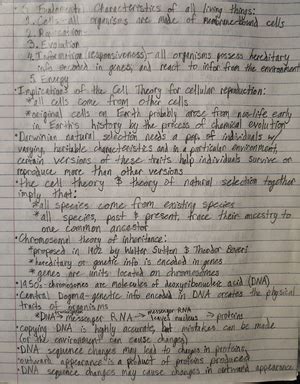 • 5 Fundamental Characteristics of all living things:
1. Cells - all organisms are made of membrane-bound cells
2. Replication
3. Evolution
4. Information (responsiveness) - all organisms possess hereditary
info encoded in genes, and react to infor. from the environment
5. Energy
• Implications of the Cell Theory for cellular reproduction:
*all cells come from other cells
*original cells on Earth probably arose from non-life early
in Earth's history by the process of chemical evolution
• Darwinian natural selection needs a pop. of individuals w/
varying, heritable characteristics and in a particular environment,
certain versions of these traits help individuals survive or
reproduce more than other versions
• The cell theory & theory of natural selection together
imply that:
*all species come from existing species
*all species, past & present, trace their ancestry to
one common ancestor
• Chromosomal theory of inheritance:
*proposed in 1902 by Walter Sutton & Theodor Boveri
*hereditary or genetic info is encoded in genes
*genes are units located on chromosomes
• 1950s: chromosomes are molecules of deoxyribonucleic acid (DNA)
• Central Dogma - genetic info encoded in DNA creates the physical
traits of organisms
*DNA → messenger RNA → proteins
• copying DNA is highly accurate, but mistakes can be made
(or the environment can cause changes)
• DNA sequence changes may lead to changes in proteins,
outward appearance is a product of proteins produced
• DNA sequence changes may cause changes in outward appearance